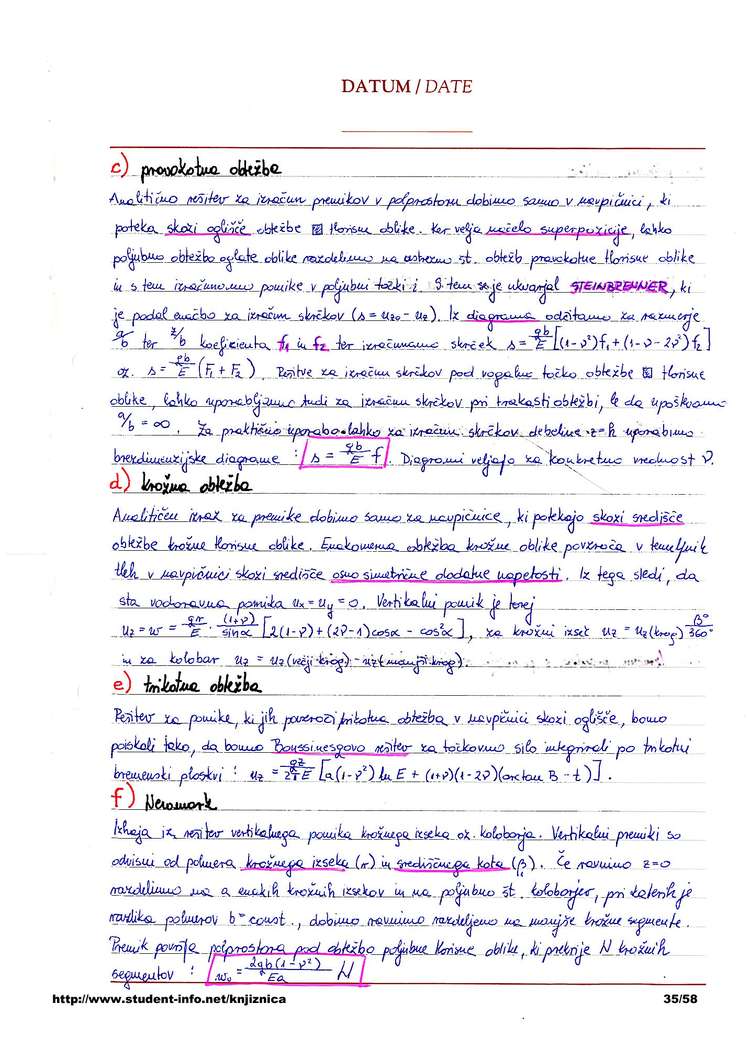 DATUM / DATE
c) pravokotna obtežba
Analitično rešitev za izračun premikov v polprostoru dobimo samo v navpičnici, ki
poteka skozi oglišče obtežbe tlorisne oblike. Ker velja načelo superpozicije, lahko
poljubno obtežbo oglate oblike razdelimo na ustrezno št. obtežb pravokotne tlorisne oblike
in s tem izračunamo pomike v poljubni točki i. S tem se je ukvarjal STEINBRENNER, ki
je podal enačbo za izračun skrčkov (s = uz0 - uz). Iz diagrama odčitamo za razmerje
a/b ter z/b koeficienta f1 in f2 ter izračunamo skrček s = qb/E [(1-ν²)f1 + (1-ν-2ν²)f2]
oz. s = qb/E (F1 + F2). Rešitve za izračun skrčkov pod vogalno točko obtežbe tlorisne
oblike, lahko uporabljamo tudi za izračun skrčkov pri trakasti obtežbi, le da upoštevamo
a/b = ∞. Za praktično uporabo lahko za izračun skrčkov debeline z=h uporabimo
brezdimenzijske diagrame : s = qb/E f. Diagrami veljajo za konkretno vrednost ν.
d) krožna obtežba
Analitičen izraz za premike dobimo samo za navpičnice, ki potekajo skozi središče
obtežbe krožne tlorisne oblike. Enakomerna obtežba krožne oblike povzroča v temeljnih
tleh v navpičnici skozi središče osno simetrične dodatne napetosti. Iz tega sledi, da
sta vodoravna pomika ux = uy = 0. Vertikalni pomik je torej
uz = w = qr/E · (1+ν)/sinα [2(1-ν) + (2ν-1)cosα - cos²α], za krožni izsek uz = uz(krog) β°/360°
in za kolobar uz = uz(večji krog) - uz(manjši krog).
e) trikotna obtežba
Rešitev za pomike, ki jih povzroči trikotna obtežba v navpičnici skozi oglišče, bomo
poiskali tako, da bomo Boussinesqovo rešitev za točkovno silo integrirali po trikotni
bremenski ploskvi : uz = qz/2πE [a(1-ν²) ln E + (1+ν)(1-2ν)(arctan B - t)].
f) Newmark
Izhaja iz rešitev vertikalnega pomika krožnega izseka oz. kolobarja. Vertikalni premiki so
odvisni od polmera krožnega izseka (r) in središčnega kota (β). Če ravnino z=0
razdelimo na a enakih krožnih izsekov in na poljubno št. kolobarjev, pri katerih je
razlika polmerov b = const., dobimo ravnino razdeljeno na manjše krožne segmente.
Premik površja polprostora pod obtežbo poljubne tlorisne oblike, ki prekrije N krožnih
segmentov : w0 = 2qb(1-ν²)/Ea N
http://www.student-info.net/knjiznica 35/58